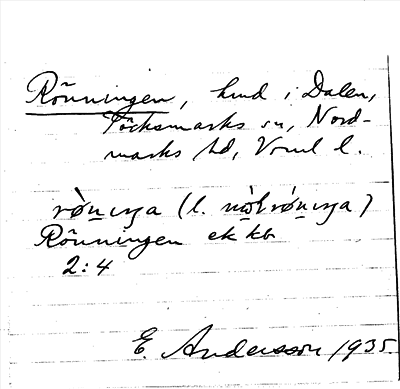 Rönningen, hmd i Dalen,
Töcksmarks sn, Nord-
marks hd, Vrml l.
rò̤nıŋa (l. nò̤lrò̤nıŋa)
Rönningen ek kb
2:4
E. Andersson 1935